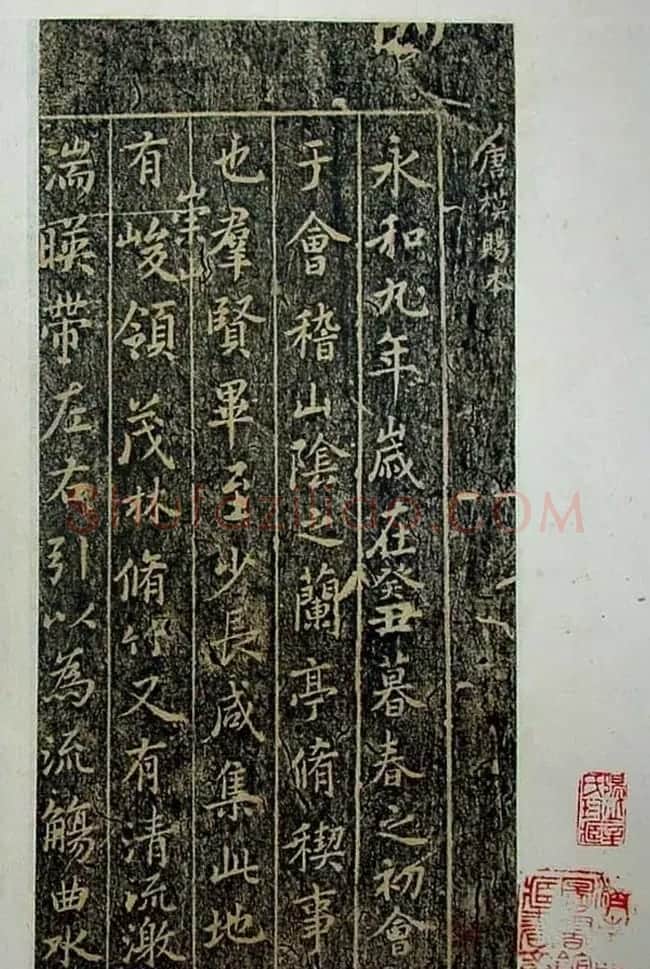 唐模賜本
永和九年歲在癸丑暮春之初會
于會稽山陰之蘭亭脩稧事
也羣賢畢至少長咸集此地
有崇山峻領茂林脩竹又有清流激
湍暎帶左右引以為流觴曲水
Shufaziliao.COM